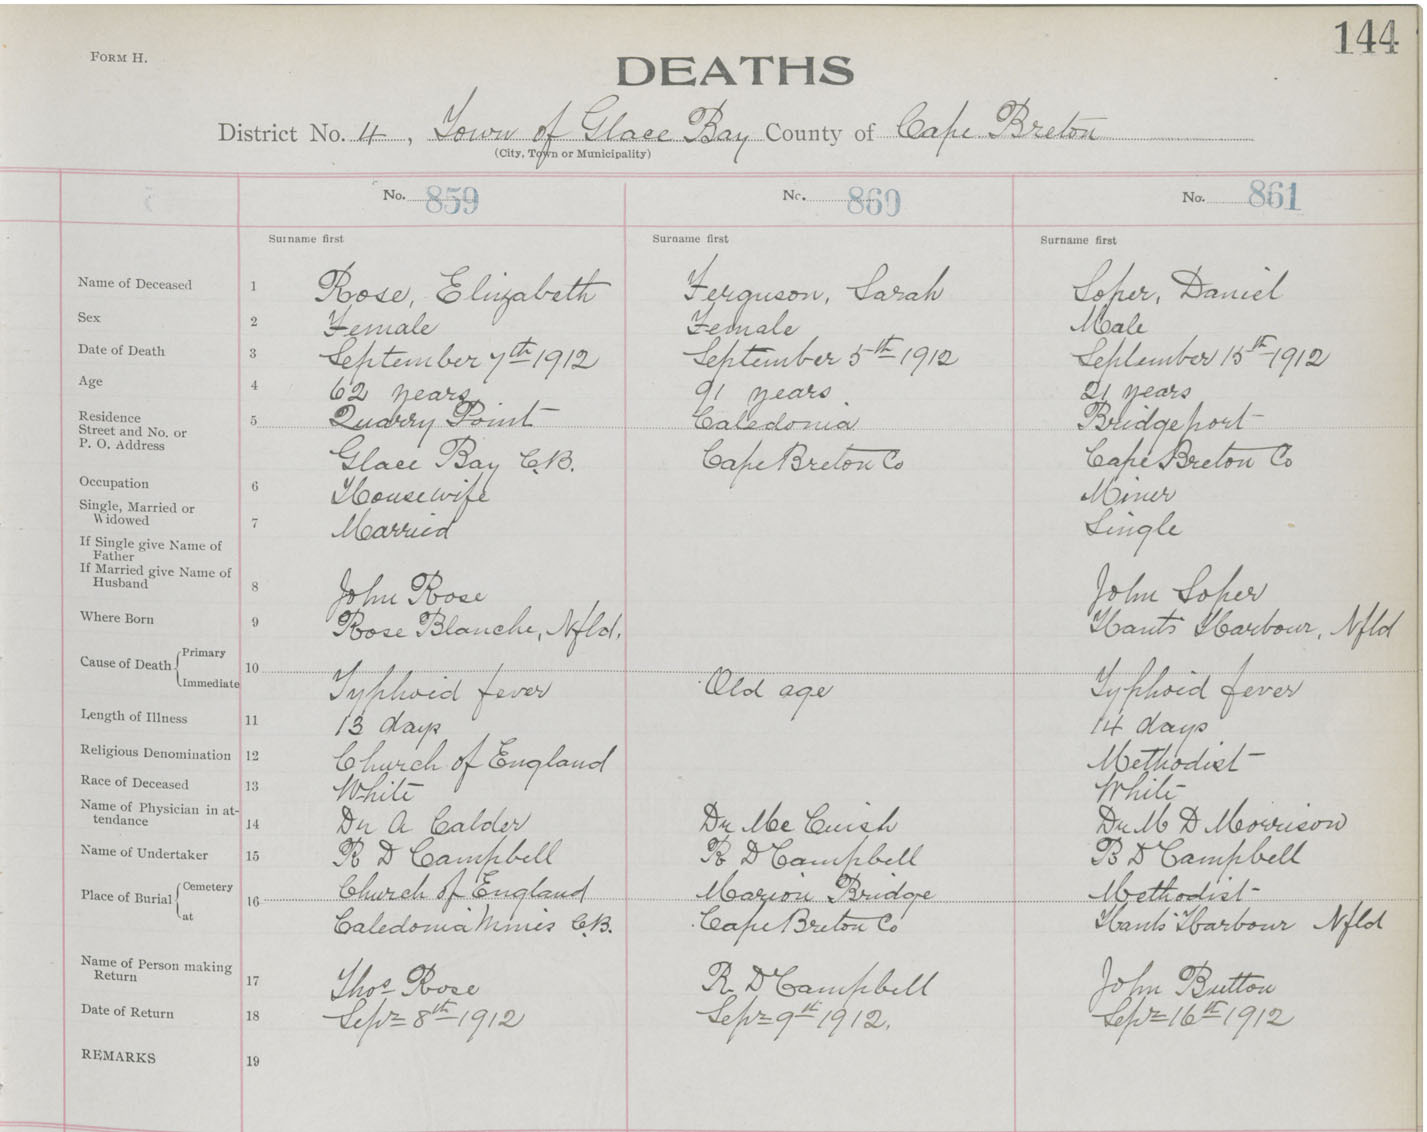 144
FORM H.
DEATHS
District No. 4, Town of Glace Bay County of Cape Breton
(City, Town or Municipality)
No. 859 No. 860 No. 861
Surname first Surname first Surname first
Name of Deceased 1 Rose, Elizabeth Ferguson, Sarah Soper, Daniel
Sex 2 Female Female Male
Date of Death 3 September 7th 1912 September 5th 1912 September 15th 1912
Age 4 62 years 91 years 21 years
Residence
Street and No. or
P. O. Address
5 Quarry Point Caledonia Bridgeport
Glace Bay C.B. Cape Breton Co Cape Breton Co
Occupation 6 Housewife Miner
Single, Married or
Widowed 7 Married Single
If Single give Name of
Father
If Married give Name of
Husband 8 John Rose John Soper
Where Born 9 Rose Blanche, Nfld. Hants Harbour, Nfld
Cause of Death Primary
Immediate
10 Typhoid fever Old age Typhoid fever
Length of Illness 11 13 days 14 days
Religious Denomination 12 Church of England Methodist
Race of Deceased 13 White White
Name of Physician in at-
tendance 14 Dr A Calder Dr Mc Cuish Dr M D Morrison
Name of Undertaker 15 R D Campbell R D Campbell R D Campbell
Place of Burial Cemetery
at
16 Church of England Marion Bridge Methodist
Caledonia Mines C.B. Cape Breton Co Hants Harbour Nfld
Name of Person making
Return 17 Thos Rose R D Campbell John Button
Date of Return 18 Sepr 8th 1912 Sepr 9th 1912. Sepr 16th 1912
REMARKS 19